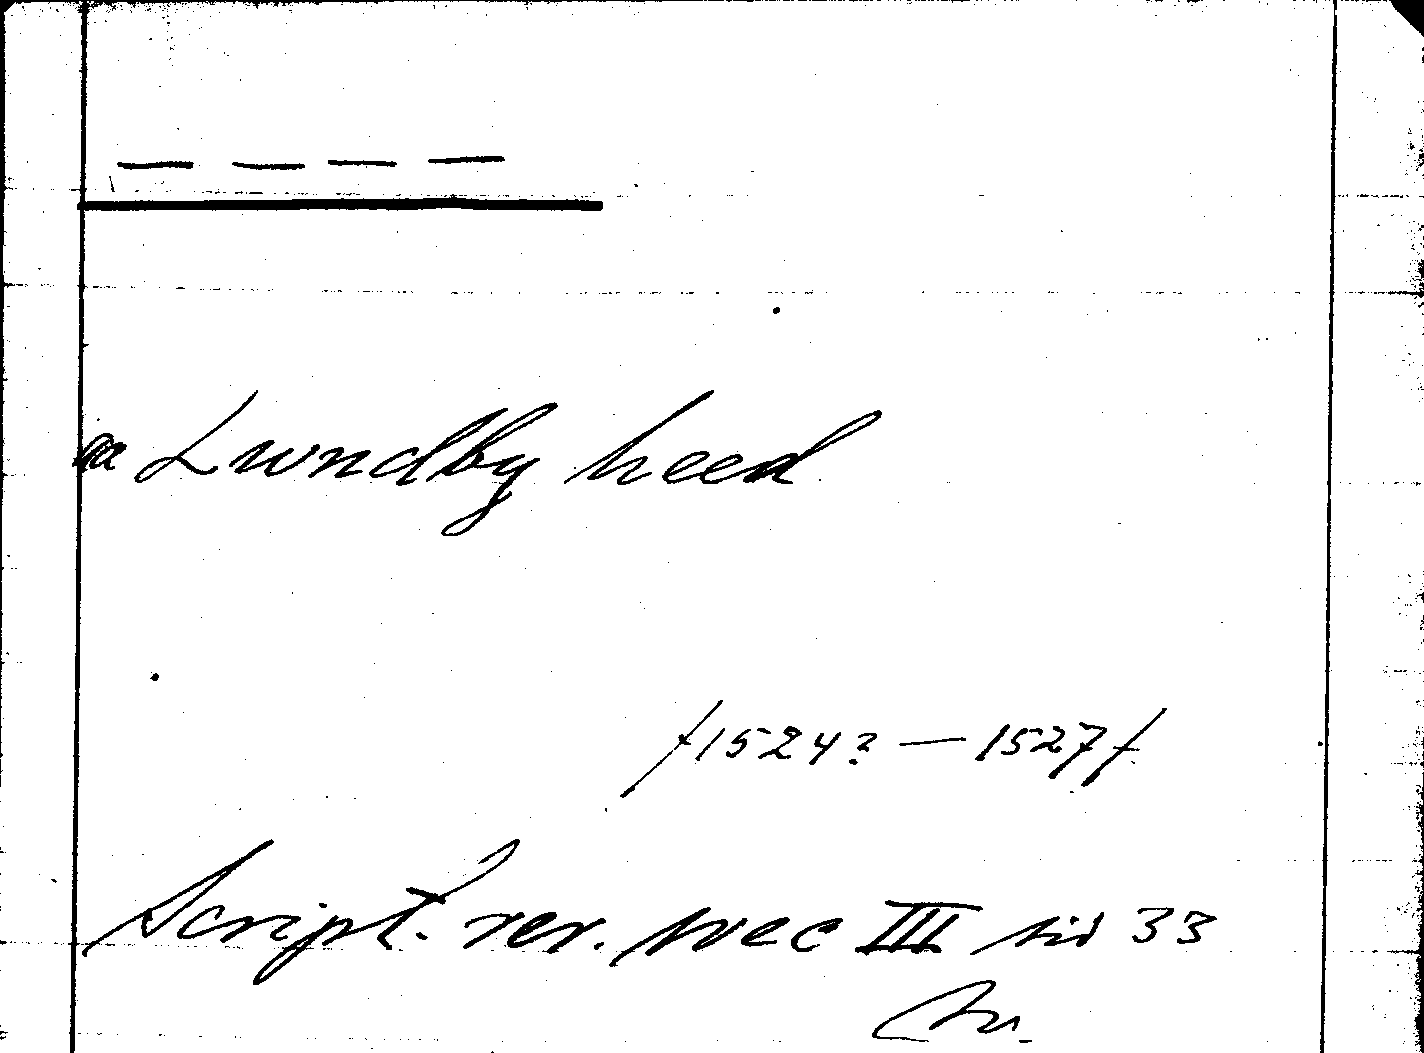 — — — —
pa Lwndby heed
/1524? — 1527/
Script. rer. svec III sid 33